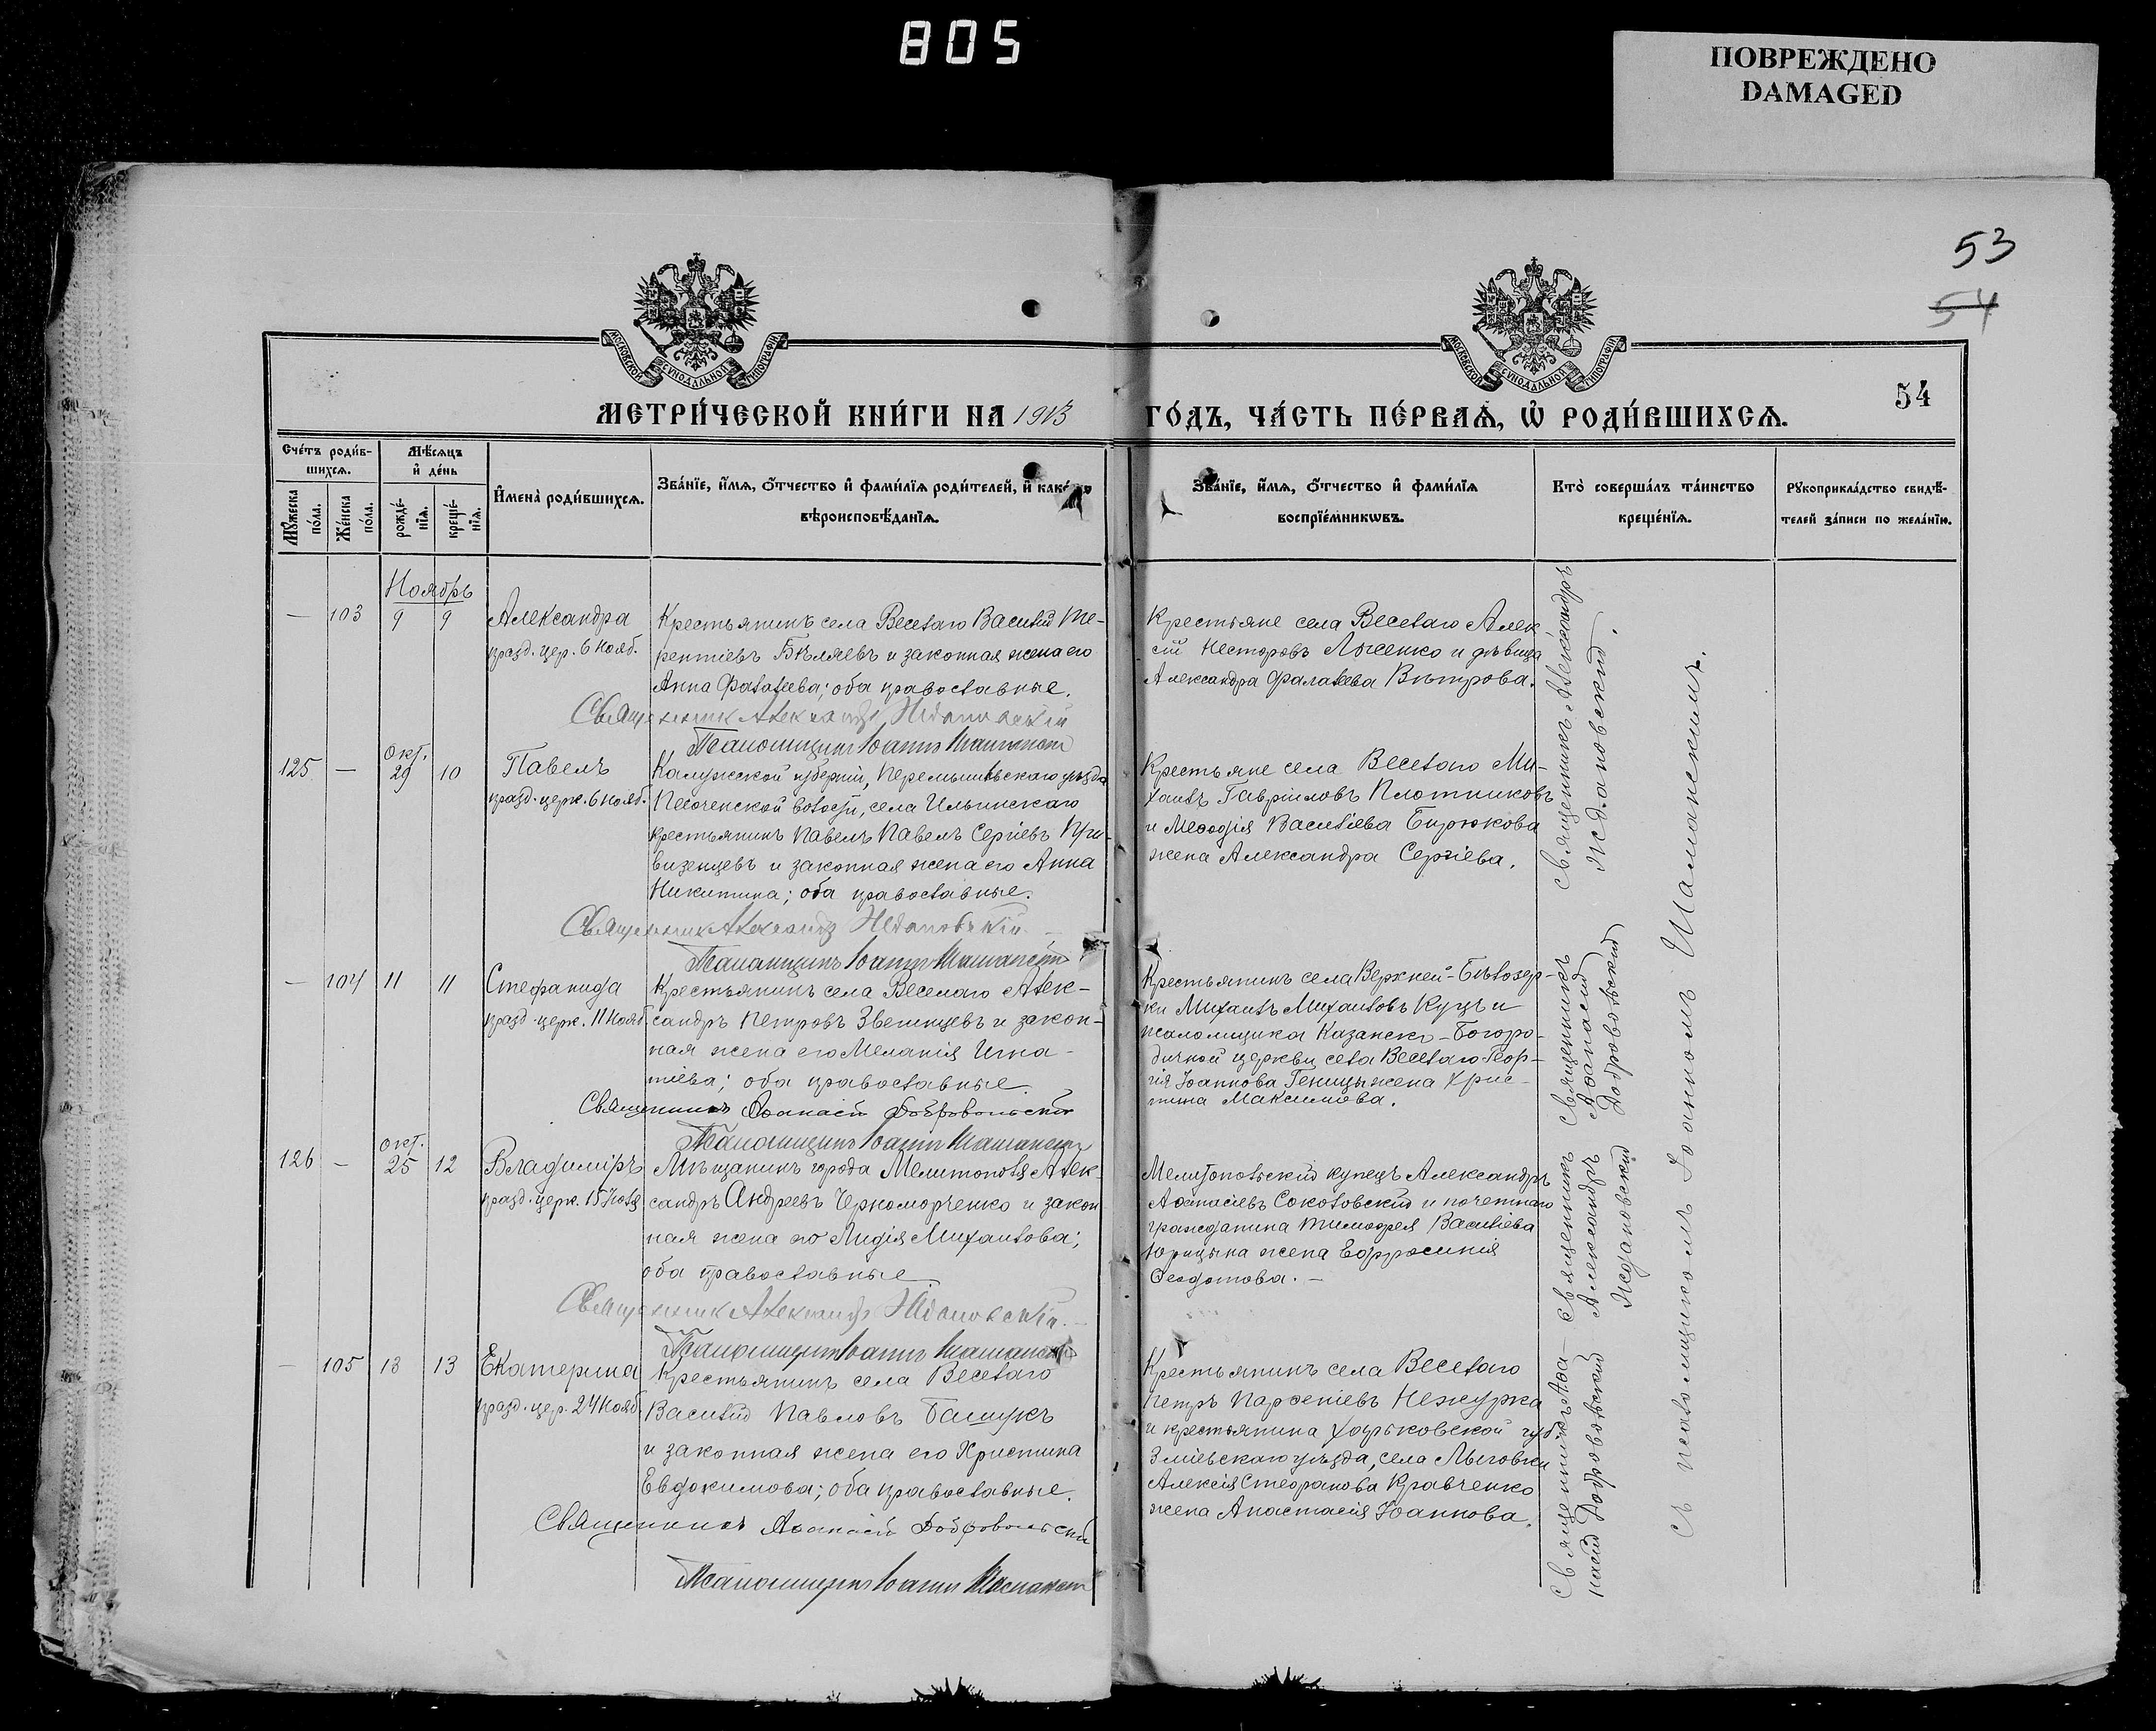 805
ПОВРЕЖДЕНО
DAMAGED
53
54
54
МОСКОВСКОЙ СѴНОДАЛЬНОЙ ТИПОГРАФІИ
МОСКОВСКОЙ СѴНОДАЛЬНОЙ ТИПОГРАФІИ
МЕТРИ́ЧЕСКОЙ КНИ́ГИ НА 1913 ГО́ДЪ, ЧА́СТЬ ПЕ́РВАѦ, Ѡ҆ РОДИ́ВШИХСѦ.
Сче́тъ роди́в-
шихсѧ.
Мꙋжеска
по́ла.
Же́нска
по́ла.
Мѣ́сѧцъ
и҆ де́нь
рожде́-
нїѧ.
креще́-
нїѧ.
И҆мена̀ роди́вшихсѧ.
Зва́нїе, и҆́мѧ, ѻ҆́тчество и҆ фами́лїѧ роди́телей, и҆
вѣроисповѣ́данїѧ.
Зва́нїе, и҆́мѧ, ѻ҆́тчество и҆ фами́лїѧ
воспрїе́мникѡвъ.
Кто̀ соверша́лъ та́инство
креще́нїѧ.
Рꙋкоприкла́дство свидѣ́-
телей за́писи по жела́нїю.
Ноябрь
— 103 9 9
Александра
празд. цер. 6 Нояб.
Крестьянинъ села Веселаго Василій Те-
рентіевъ Бѣляевъ и законная жена его
Анна Фалалеева; оба православные.
Священник Александр Ждановскій
Псаломщикъ Іоаннъ Шаманскій
Крестьяне села Веселаго Алек
сій Несторовъ Лысенко и дѣвица
Александра Фалалеева Вѣтрова.
125 — Окт. 29 10
Павелъ
празд. церк. 6 Нояб.
Калужской губерніи, Перемышльскаго уѣзда
волости, села Ильинскаго
крестьянинъ Павелъ Павелъ Сергіевъ При-
визенцевъ и законная жена его Анна
Никитина; оба православные.
Священник Александр Ждановскій.
Псаломщикъ Іоаннъ Шаманскій
Крестьяне села Веселаго Ми-
хаилъ Гавріиловъ Плотниковъ
и Меѳодія Василіева Бирюкова
жена Александра Сергіева.
Священникъ Александръ
Ждановскій.
— 104 11 11
Стефанида
празд. церк. 11 Нояб.
Крестьянинъ села Веселаго Алек-
сандръ Петровъ Звенинцевъ и закон-
ная жена его Меланія Игна-
тіева; оба православные.
Священникъ Аѳанасій Добровольскій
Псаломщикъ Іоаннъ Шаманскій
Крестьянинъ села Верхней-Бѣлозер-
ки Михаилъ Михаиловъ Куцъ и
псаломщика Казанско-Богоро-
дичной церкви села Веселаго Геор-
гія Іоаннова Геницы жена Хрис-
тина Максимова.
Священникъ
Аѳанасій
Добровольскій
126 — Окт. 25 12
Владиміръ
празд. церк. 15 Іюля
Мѣщанинъ города Мелитополя Алек-
сандръ Андреевъ Черноморченко и закон
ная жена его Лидія Михаилова;
оба православные.
Священник Александр Ждановскій.
Псаломщикъ Іоаннъ Шаманскій
Мелитопольскій купецъ Александръ
Соколовскій и почетнаго
гражданина Тимоѳея Василіева
Юрицына жена Евфросинія
Ѳеодотова. —
Священникъ
Александръ
Ждановскій
— 105 13 13
Екатерина
празд. цер. 24 Нояб.
Крестьянинъ села Веселаго
Василій Павловъ Башукъ
и законная жена его Христина
Евдокимова; оба православные.
Священникъ Аѳанасій Добровольскій
Псаломщикъ Іоаннъ Шаманскій
Крестьянинъ села Веселаго
Петръ Парѳеніевъ Нежурка
и крестьянина Харьковской губ.
Зміевскаго уѣзда, села Лыговки
Алексія Стефанова Кравченко
жена Анастасія Іоаннова.
Священникъ Аѳа-
насій Добровольскій
съ псаломщикомъ Іоанномъ Шаманскимъ.